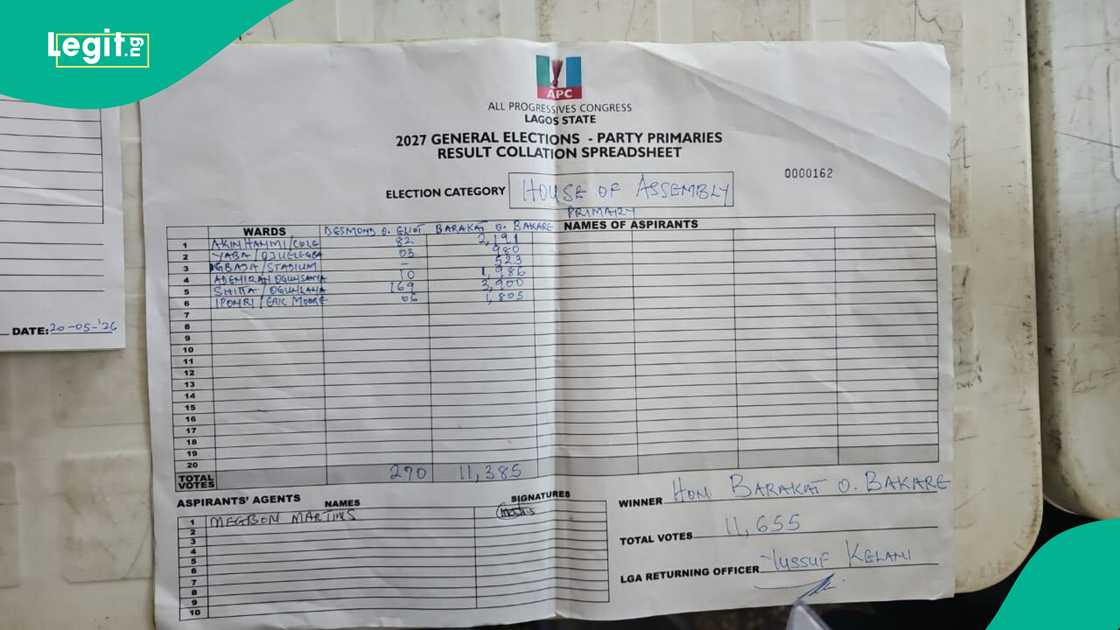 Legit.ng
DATE: 20-05-'26
APC
ALL PROGRESSIVES CONGRESS
LAGOS STATE
2027 GENERAL ELECTIONS - PARTY PRIMARIES
RESULT COLLATION SPREADSHEET
0000162
ELECTION CATEGORY HOUSE OF ASSEMBLY
PRIMARY
WARDS DESMOND O. ELIOT BARAKAT O. BAKARE NAMES OF ASPIRANTS
1 82 2,191
2 YABA/OJUELEGBA 03 980
3 IGBAJA/STADIUM - 523
4 10 1,986
5 SHITTA/OGUNLANA 169 3,900
6 IPONRI/ERIC MOORE 06 1,805
7
8
9
10
11
12
13
14
15
16
17
18
19
20
TOTAL VOTES 270 11,385
ASPIRANTS' AGENTS NAMES SIGNATURES
1 MEGBON MARTINS
2
3
4
5
6
7
8
9
10
WINNER HON BARAKAT O. BAKARE
TOTAL VOTES 11,655
LGA RETURNING OFFICER YUSSUF KELANI